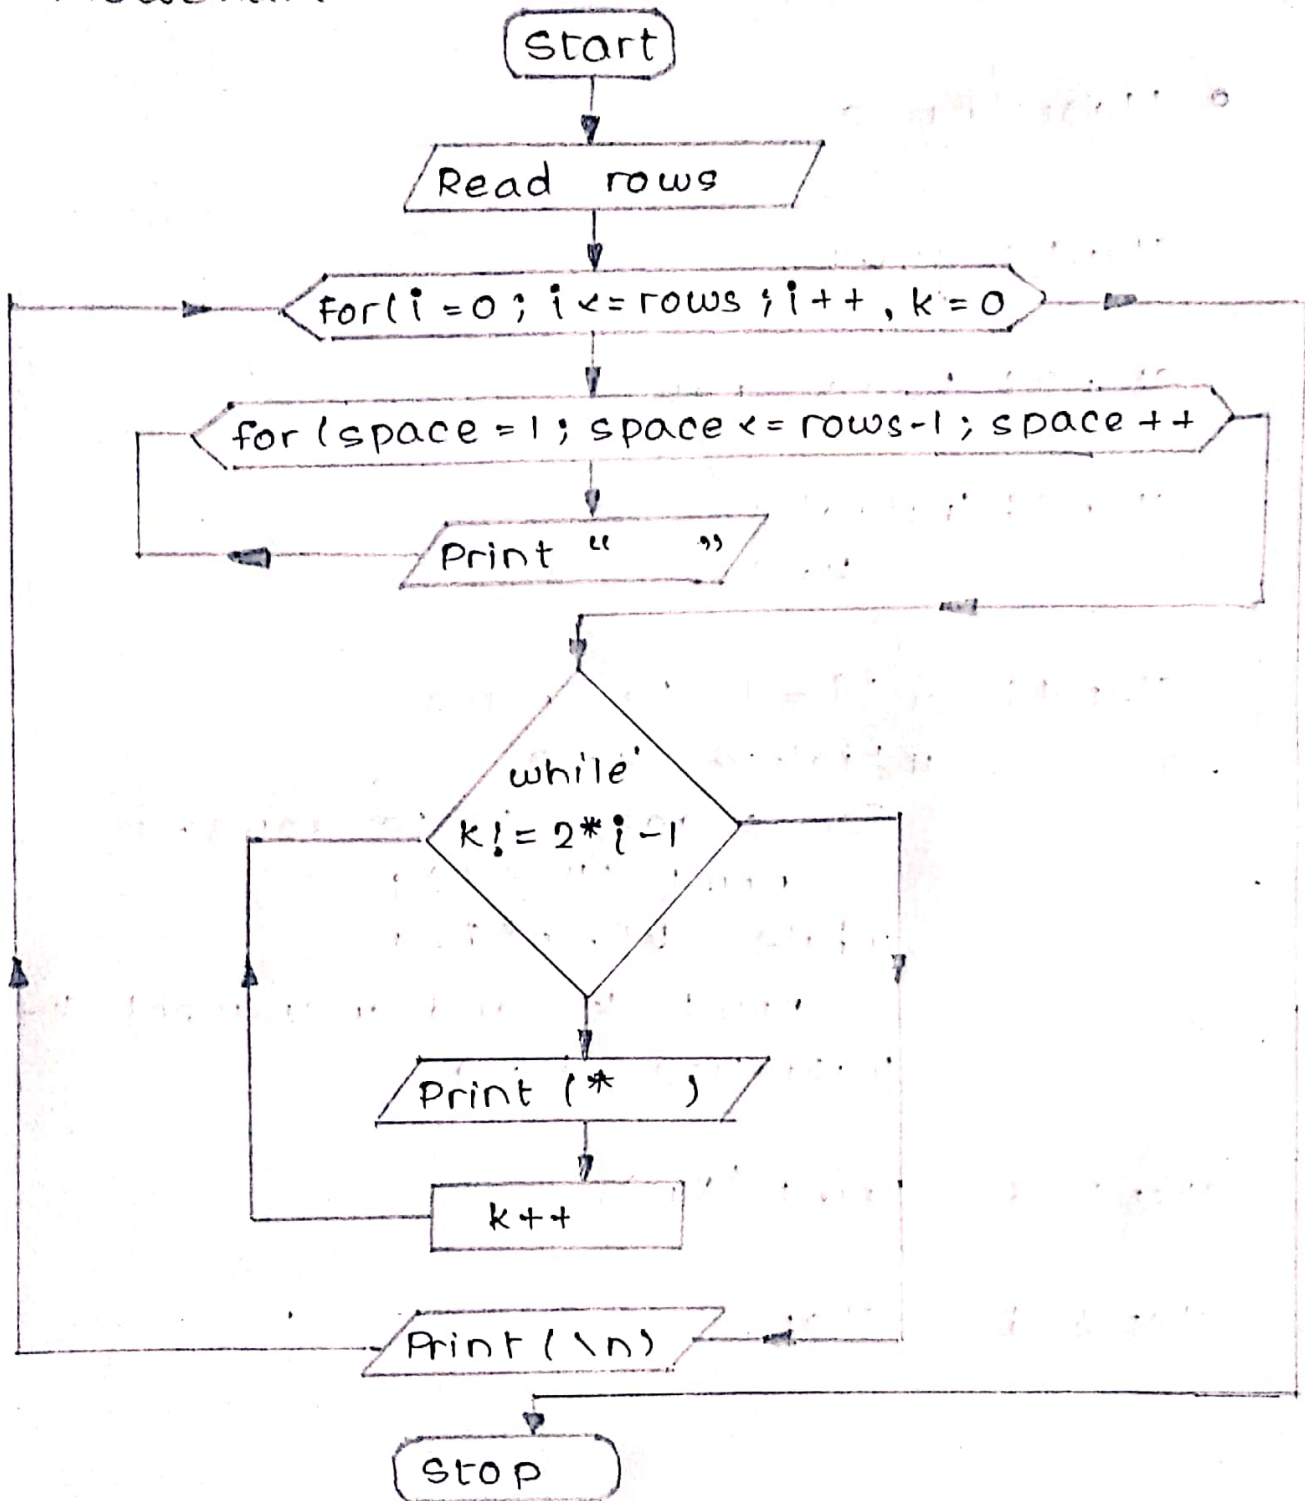 Start
Read rows
For(i = 0 ; i <= rows ; i++, k = 0
for (space = 1 ; space <= rows-1 ; space ++
Print “ ”
while
k != 2*i-1
Print (* )
k++
Print (\n)
Stop